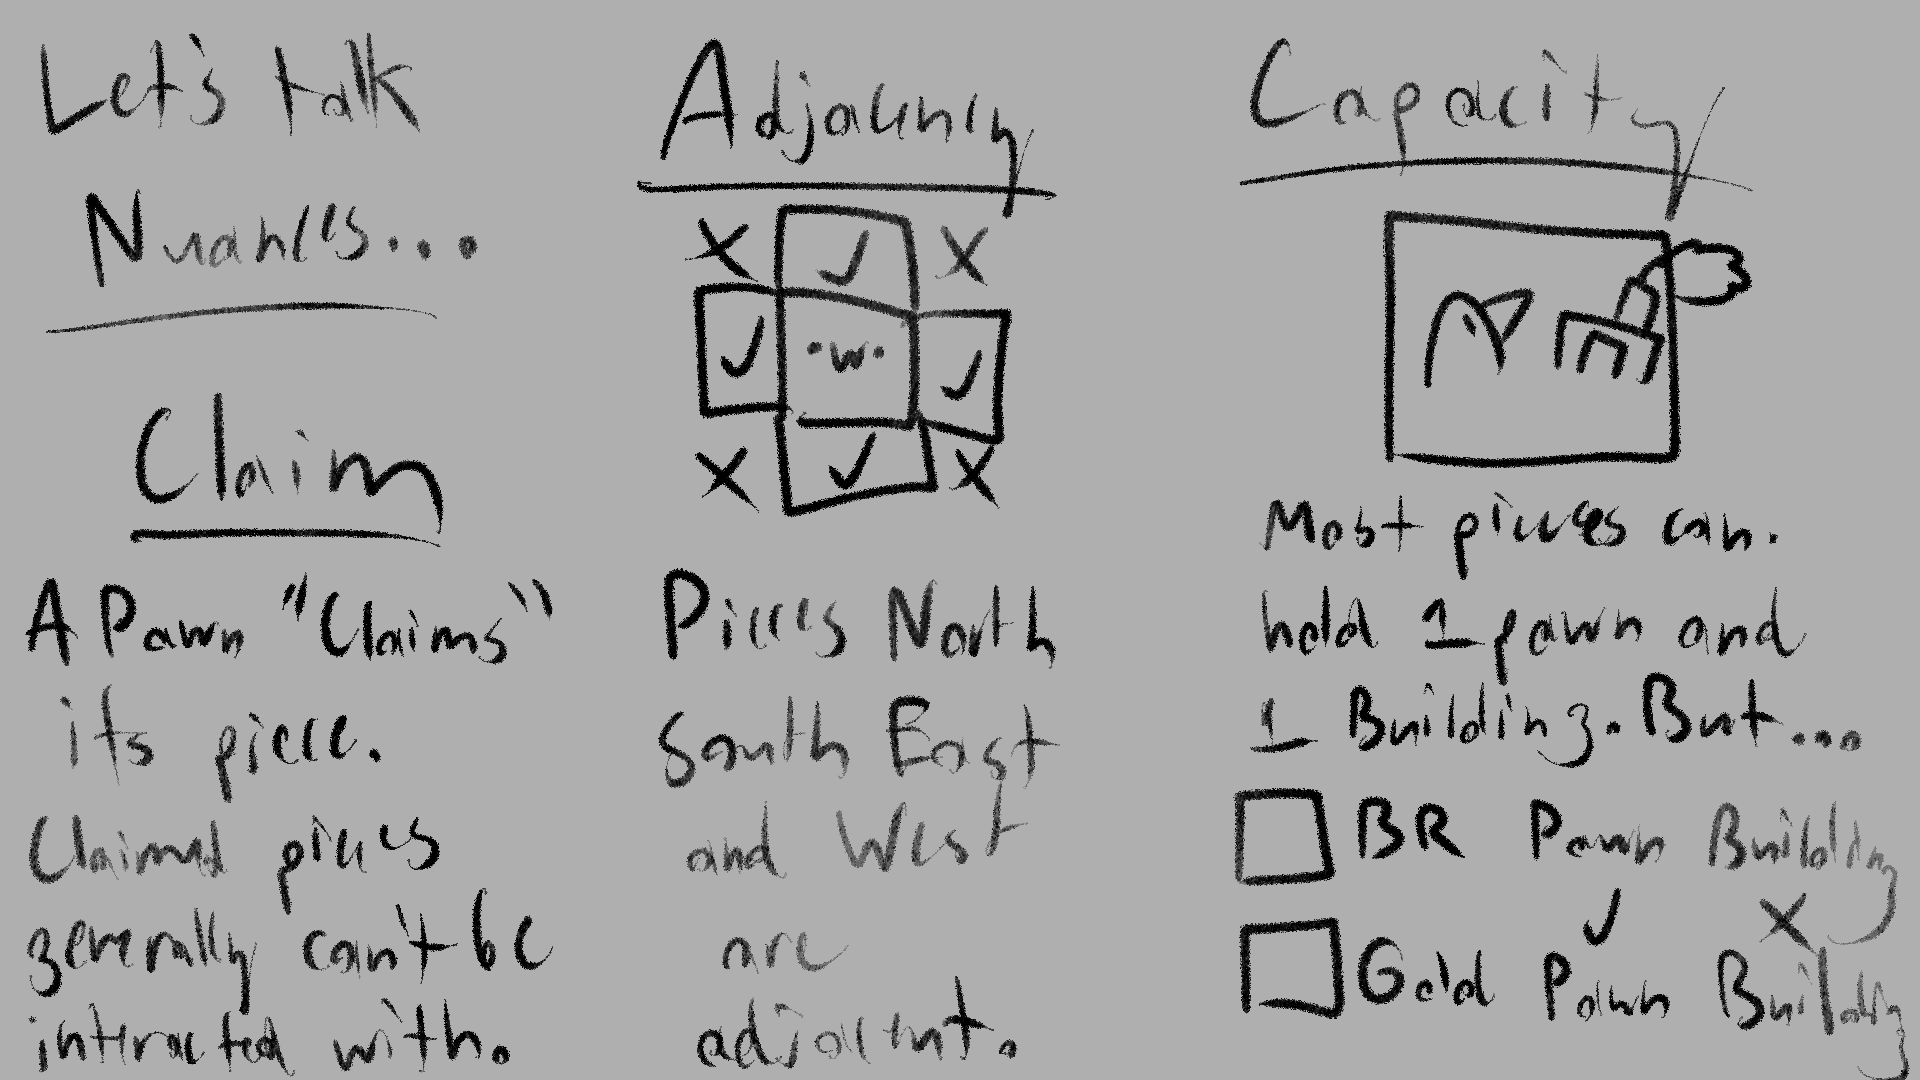 Let's talk
Nuances...
Claim
A Pawn "Claims"
its piece.
Claimed pieces
generally can't be
interacted with.
Adjacency
X ✓ X
✓ •w• ✓
X ✓ X
Pieces North
South East
and West
are
adjacent.
Capacity
Most pieces can.
hold 1 pawn and
1 Building. But...
BR Pawn Building
✓ X
Gold Pawn Building